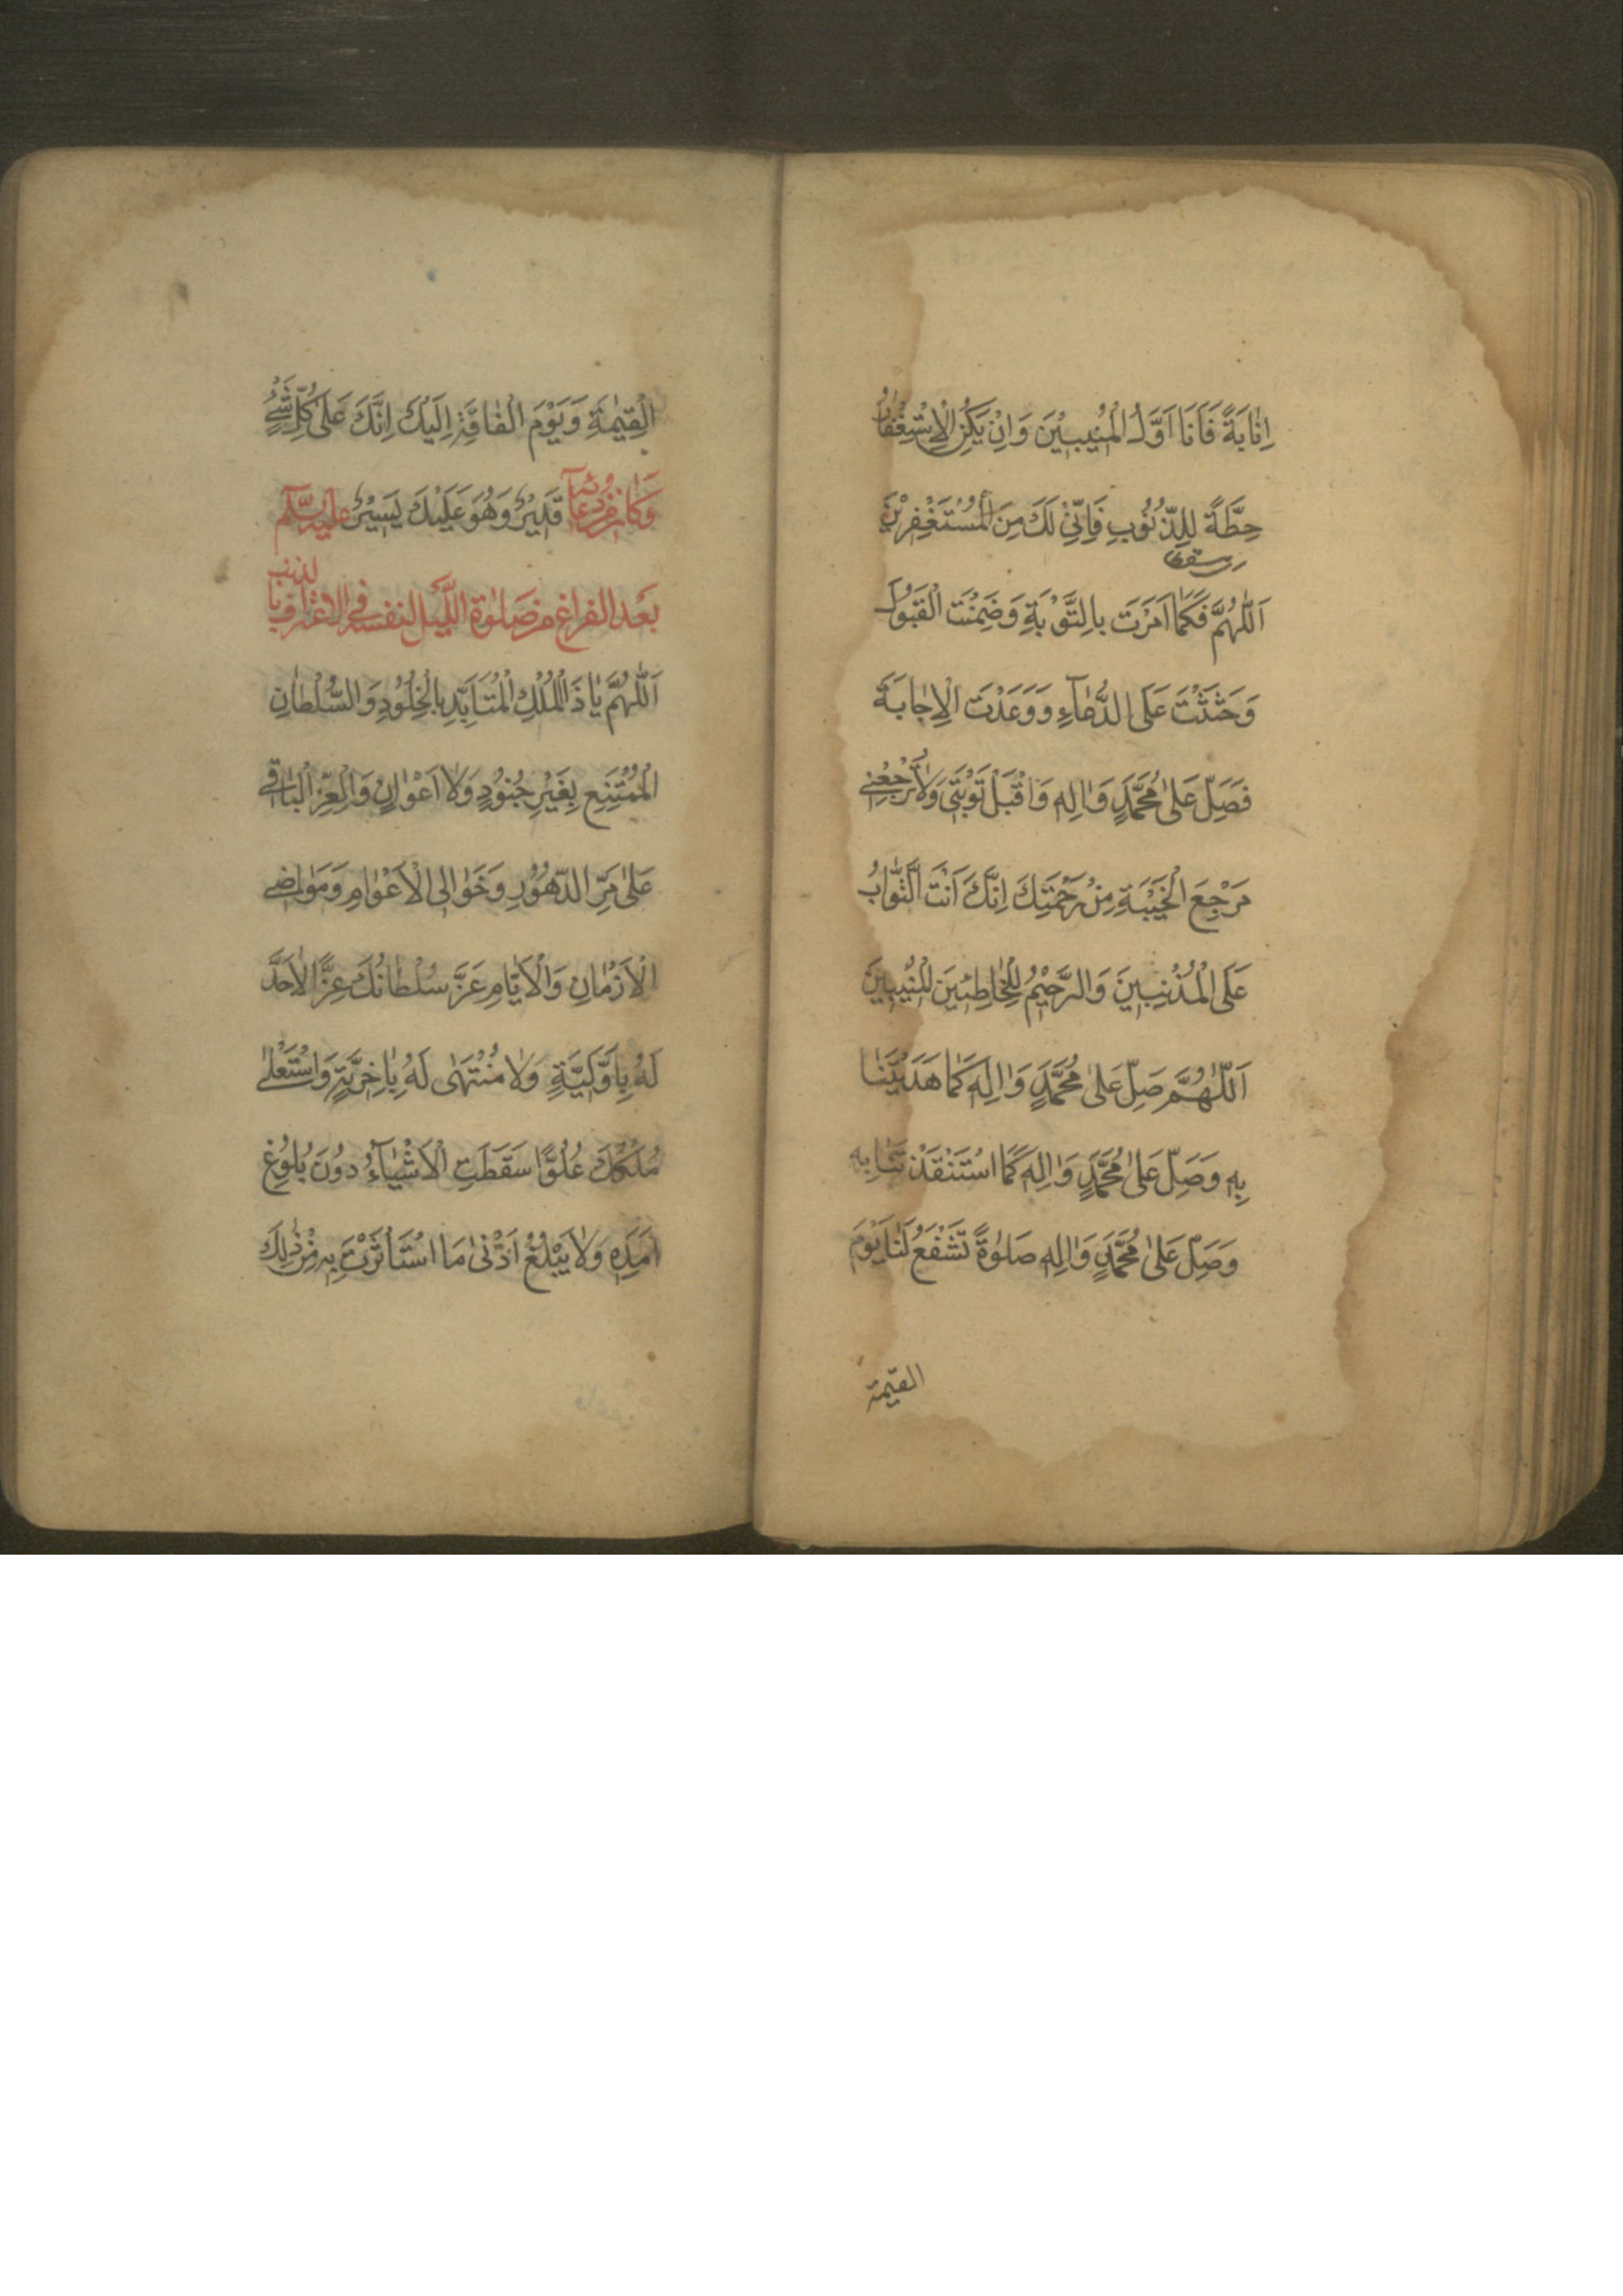 اِنٰابَةً فَاَنَا اَوَّلُ الْمُنِيبِيْنَ وَاِنْ يَكُنِ الْاِسْتِغْفٰارُ
حِطَّةً لِلذُّنُوْبِ فَاِنِّيْ لَكَ مِنَ الْمُسْتَغْفِرِيْنَ
اَللّٰهُمَّ فَكَمٰا اَمَرْتَ بِالتَّوْبَةِ وَضَمِنْتَ الْقَبُوْلَ
وَحَثَثْتَ عَلَى الدُّعٰآءِ وَوَعَدْتَ الْاِجٰابَةَ
فَصَلِّ عَلىٰ مُحَمَّدٍ وَاٰلِهِ وَاقْبَلْ تَوْبَتِيْ وَلاٰ تَرْجِعْنِيْ
مَرْجِعَ الْخَيْبَةِ مِنْ رَحْمَتِكَ اِنَّكَ اَنْتَ التَّوّٰابُ
عَلَى الْمُذْنِبِينَ وَالرَّحِيْمُ لِلْخٰاطِئِينَ الْمُنِيبِينَ
اَللّٰهُمَّ صَلِّ عَلىٰ مُحَمَّدٍ وَاٰلِهِ كَمٰا هَدَيْتَنٰا
بِهِ وَصَلِّ عَلىٰ مُحَمَّدٍ وَاٰلِهِ كَمٰا اسْتَنْقَذْتَنٰا بِهِ
وَصَلِّ عَلىٰ مُحَمَّدٍ وَاٰلِهِ صَلٰوةً تَشْفَعُ لَنٰا يَوْمَ
القيٰمة
الْقِيٰمَةِ وَيَوْمَ الْفٰاقَةِ اِلَيْكَ اِنَّكَ عَلىٰ كُلِّ شَيْءٍ
قَدِيْرٌ وَهُوَ عَلَيْكَ يَسِيْرٌ وَكٰانَ مِنْ دُعٰائِهِ عليه السّلم
بَعْدَ الفراغ من صَلوٰة اللَّيْل لنفسه في الاعتراف بالذنب
اَللّٰهُمَّ يٰا ذَا الْمُلْكِ الْمُتَاَبِّدِ بِالْخُلُوْدِ وَالسُّلْطٰانِ
الْمُمْتَنِعِ بِغَيْرِ جُنُوْدٍ وَلاٰ اَعْوٰانٍ وَالْعِزِّ الْبٰاقِي
عَلىٰ مَرِّ الدُّهُوْرِ وَخَوٰالِي الْاَعْوٰامِ وَمَوٰاضِي
الْاَزْمٰانِ وَالْاَيّٰامِ عَزَّ سُلْطٰانُكَ عِزًّا لاٰ حَدَّ
لَهُ بِاَوَّلِيَّةٍ وَلاٰ مُنْتَهٰى لَهُ بِاٰخِرِيَّةٍ وَاسْتَعْلىٰ
مُلْكُكَ عُلُوًّا سَقَطَتِ الْاَشْيٰآءُ دُوْنَ بُلُوْغِ
اَمَدِهِ وَلاٰ يَبْلُغُ اَدْنىٰ مَا اسْتَاْثَرْتَ بِهِ مِنْ ذٰلِكَ